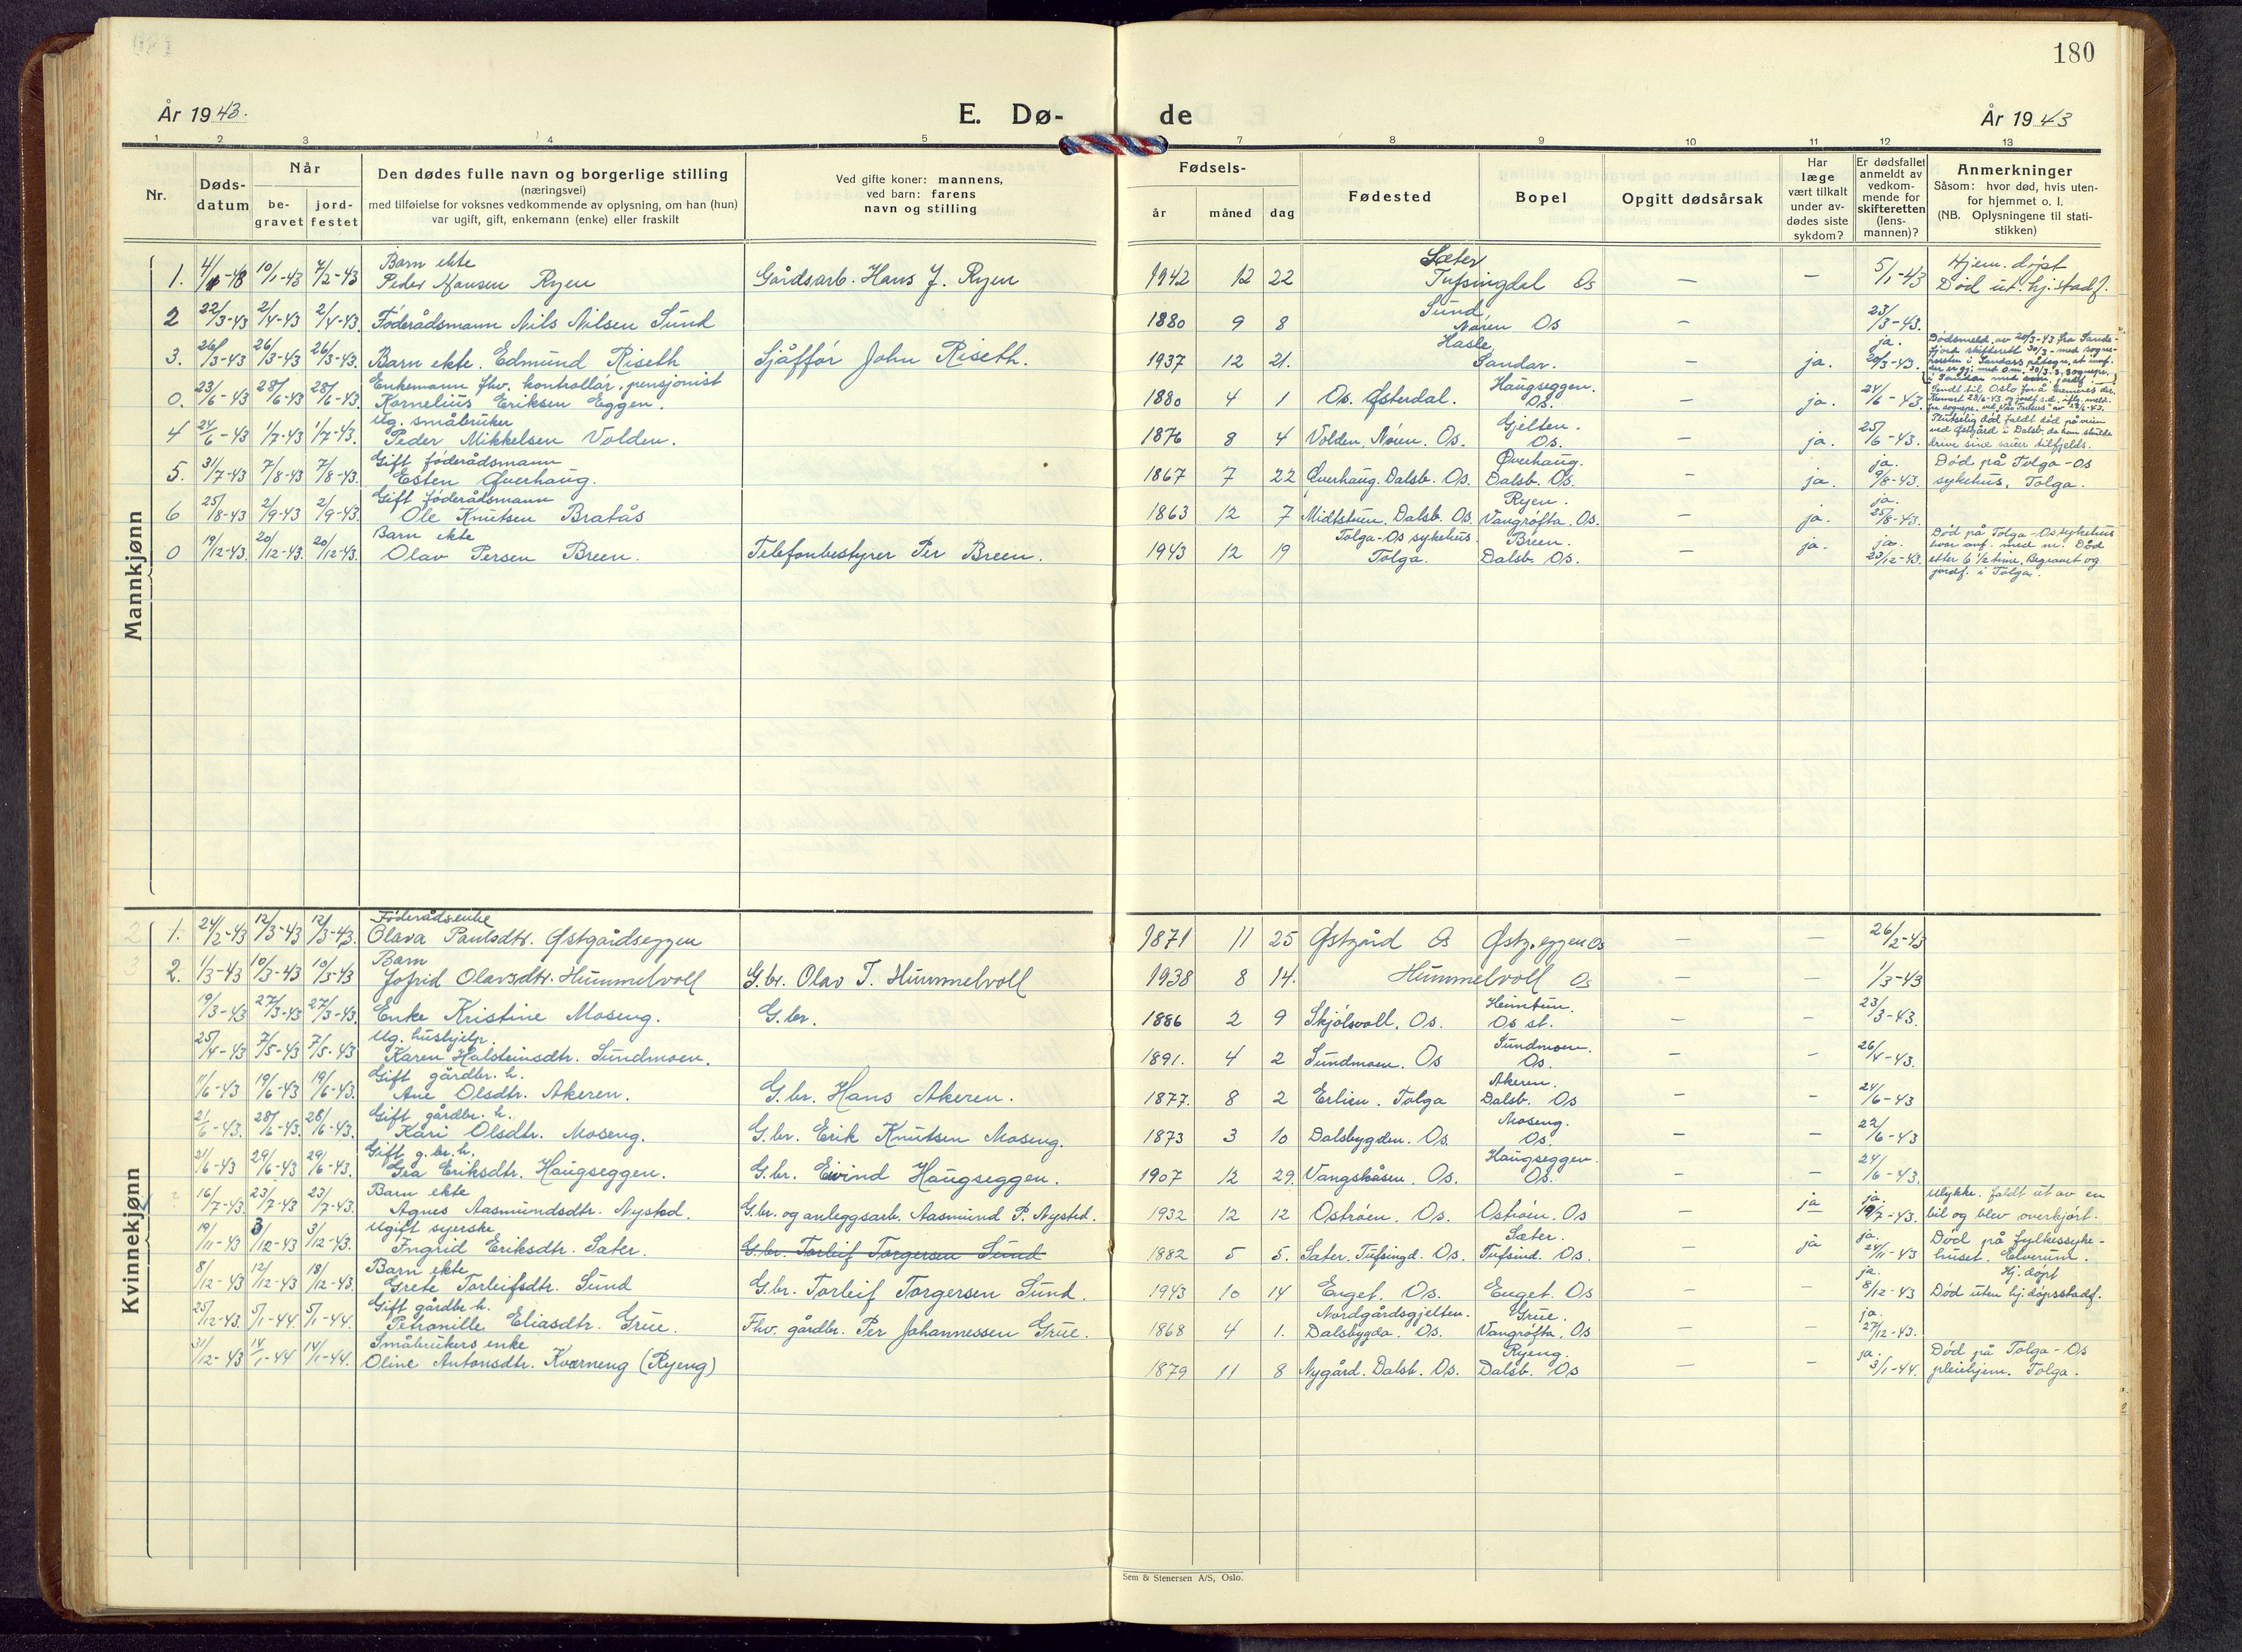 180
År 1943.
E. Dø-
de
År 1943
1 2 3 4 5 7 8 9 10 11 12 13
Nr.
Døds-
datum
Når
be-
gravet
jord-
festet
Den dødes fulle navn og borgerlige stilling
(næringsvei)
med tilføielse for voksnes vedkommende av oplysning, om han (hun)
var ugift, gift, enkemann (enke) eller fraskilt
Ved gifte koner: mannens,
ved barn: farens
navn og stilling
Fødsels-
år måned dag
Fødested
Bopel
Opgitt dødsårsak
Har
læge
vært tilkalt
under av-
dødes siste
sykdom?
Er dødsfallet
anmeldt av
vedkom-
mende for
skifteretten
(lens-
mannen)?
Anmerkninger
Såsom: hvor død, hvis uten-
for hjemmet o. l.
(NB. Oplysningene til stati-
stikken)
Mannkjønn
Barn ekte Sæter Hjem. døpt
1. 10/1-43 7/2-43 Peder Hansen Ryen Gårdsarb. Hans J. Ryen 1942 12 22 Tufsingdal Os — — 5/1-43 Død ut. hj. stadf.
Sund
2 22/3-43 2/4-43 2/4-43. Føderådsmann Nils Nilsen Sund 1880 9 8 Nøren Os — 23/3-43.
Hasle ja.
3. 26/3-43 26/3-43. Barn ekte. Edmund Riseth Sjåffør John Riseth. 1937 12 21. Sandar. ja. Dødsmeld. av 20/3-43 fra Sande-
fjord skifterett 30/3 - med sogne-
Enkemann fhv. kontrollør, pensjonist Haugseggen.
0. 23/6-43 28/6-43 28/6-43. Kornelius Eriksen Eggen. 1880 4 1 Os. Østerdal. Os. — ja. 24/6-43. Sendt til Oslo for å kremeres der.
Ug. småbruker Gjelten. Plutselig død faldt død på veien
4 24/6-43 1/7-43. 1/7-43. Peder Mikkelsen Volden. 1876 8 4 Volden, Nøren. Os. Os. — ja. 25/6-43. ved Østgård i Dalsb. da han skulde
drive sine sauer tilfjelds.
Gift føderådsmann Øverhaug. ja. Død på Tolga-Os
5. 31/7-43 7/8-43 7/8-43. Esten Øverhaug. 1867 7 22 Øverhaug. Dalsb. Os. Dalsb. Os. — ja. 9/8-43. sykehus, Tolga.
Gift føderådsmann Ryen. ja.
6 25/8-43 2/9-43 2/9-43. Ole Knutsen Bratås 1863 12 7 Midtstuen. Dalsb. Os. Vangrøfta. Os. — ja. 25/8-43.
Barn ekte Tolga-Os sykehus. Breen. ja. Død på Tolga-Os sykehus
0 19/12-43. 20/12-43. 20/12-43. Olav Persen Breen. Telefonbestyrer Per Breen. 1943 12 19 Tolga. Dalsb. Os. — ja. 23/12-43. hvor anf. med m. Død
etter 6 1/2 time. Begravet og
jordf. i Tolga.
Kvinnekjønn
Føderådsenke
1. 24/2-43 12/3-43 12/3-43. Olava Paulsdtr. Østgårdseggen 1871 11 25 Østgård Os Østg.eggen Os — — 26/2-43
Barn
2. 1/3-43 10/3-43 10/3-43 Jofrid Olavsdtr. Hummelvoll G.br. Olav T. Hummelvoll 1938 8 14. Hummelvoll Os — — 1/3-43
Heimtun.
19/3-43 27/3-43 27/3-43. Enke Kristine Moseng. G.br. 1886 2 9 Skjølsvoll, Os. Os st. — — 23/3-43.
Ug. hushjelp. Sundmoen.
25/4-43 7/5-43 7/5-43 Karen Halsteinsdtr. Sundmoen. 1891. 4 2 Sundmoen. Os Os. — — 26/4-43.
Gift gårdbr. h. Akeren.
11/6-43 19/6-43 19/6-43. Ane Olsdtr. Akeren. G.br. Hans Akeren. 1877. 8 2 Erlien. Tolga Dalsb. Os — — 24/6-43
Gift gårdbr. h. Moseng.
21/6-43. 28/6-43. 28/6-43. Kari Olsdtr. Moseng. G.br. Erik Knutsen Moseng. 1873 3 10 Dalsbygden. Os. Os. — — 22/6-43
Gift g.br.h. Haugseggen.
21/6-43 29/6-43 29/6-43. Gra Eriksdtr. Haugseggen. G.br. Eivind Haugseggen. 1907 12 29. Vangskåsen. Os. Os. — — 24/6-43.
Barn ekte ja. Ulykke. faldt ut av en
16/7-43. 23/7-43 23/7-43. Agnes Aasmundsdtr. Nysted. G.br. og anleggsarb. Aasmund P. Nysted. 1932 12 12 Ostrøen. Os. Ostrøen. Os — ja 19/7-43. bil og blev overkjørt.
Ugift syerske Sæter. ja. Død på fylkessyke-
19/11-43 3/12-43 3/12-43. Ingrid Eriksdtr. Sæter. G.br. Torleif Torgersen Sund 1882 5 5. Sæter. Tufsingd. Os. Tufsind. Os. — ja 24/11-43 huset. Elverum.
Barn ekte ja. Hj. døpt
8/12-43 12/12-43 18/12-43. Grete Torleifsdtr. Sund G.br. Torleif Torgersen Sund. 1943 10 14 Enget. Os. Enget. Os — 8/12-43 Død uten hj.døpsstadf.
Gift gårdbr. h. Nordgårdsgjelten. Grue. ja.
25/12-43. 5/1-44. 5/1-44. Petronille Eliasdtr. Grue. Fhv. gårdbr. Per Johannessen Grue. 1868 4 1. Dalsbygda. Os. Vangrøfta. Os — — 27/12-43.
Småbrukers enke Ryeng. ja. Død på Tolga-Os
31/12-43 14/1-44 14/1-44. Oline Antonsdtr. Kværneng (Ryeng) 1879 11 8 Nygård. Dalsb. Os. Dalsb. Os — — 3/1-44. pleiehjem. Tolga.
Sem & Stenersen A/S, Oslo.